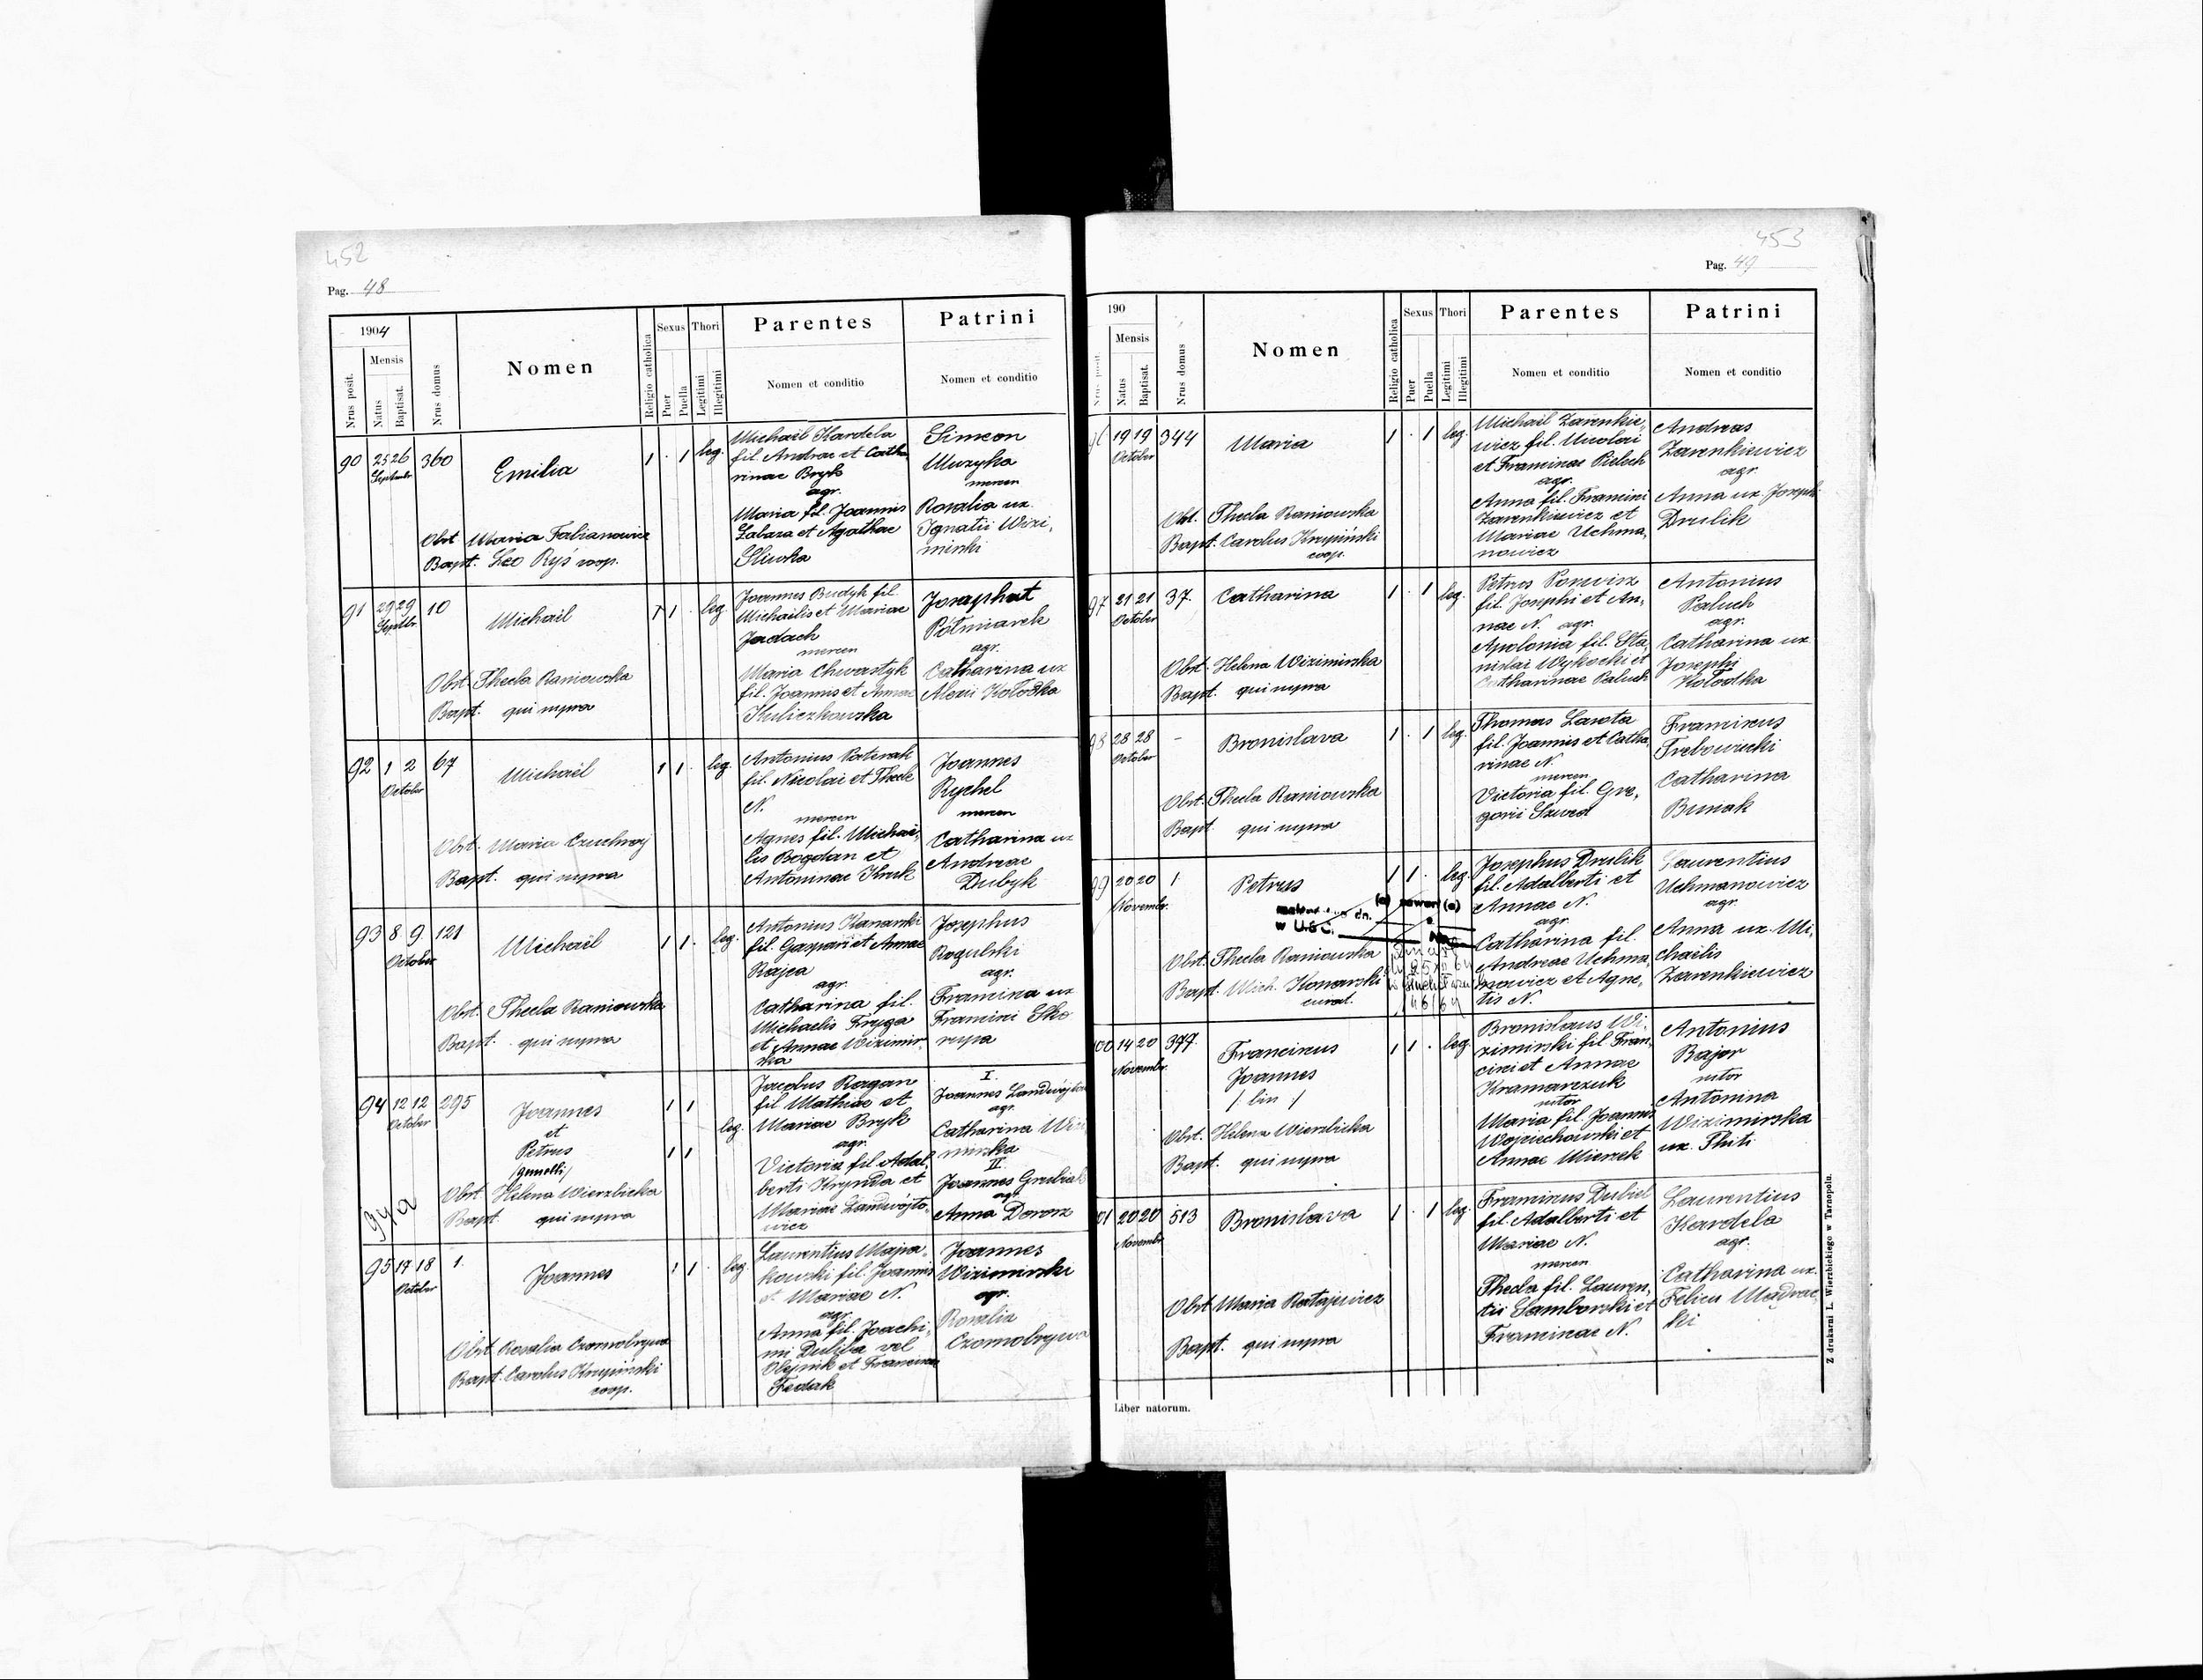 452
Pag. 48
1904
Nrus posit.
Mensis
Natus
Baptisat.
Nrus domus
Nomen
Religio catholica
Sexus
Puer
Puella
Thori
Legitimi
Illegitimi
Parentes
Nomen et conditio
Patrini
Nomen et conditio
90
25 26
Septembr.
360
Emilia
1 . 1 leg.
Obst. Maria Fabianowicz
Bapt. Leo Ryś coop.
Michaël Kardela
fil. Andreae et Catha-
rinae Bryk
agr.
Maria fil. Joannis
Łabaza et Agathae
Śliwka
Simeon
Muzyka
mercen
Rosalia ux.
Ignatii Wizi-
mirski
91
29 29
Septbr.
10
Michaël
1 1 . leg.
Obst. Thecla Raniowska
Bapt. qui supra
Joannes Budyk fil.
Michaëlis et Mariae
Jadach
mercen
Maria Chwastyk
fil. Joannis et Annae
Kuliczkowska
Josaphat
Półtniarek
agr.
Catharina ux
Alexii Kołodka
92
1 2
October
67
Michaël
1 1 . leg.
Obst. Maria Czuchraj
Bapt. qui supra
Antonius Paternak
fil. Nicolai et Thecle
N.
mercen
Agnes fil. Michaë-
lis Bogdan et
Antoninae Kruk
Joannes
Rychel
mercen
Catharina ux
Andreae
Dubyk
93
8 9
October
121
Michaël
1 1 . leg.
Obst. Thecla Raniowska
Bapt. qui supra
Antonius Kanarski
fil. Gaspari et Annae
Rajca
agr.
Catharina fil.
Michaelis Fryga
et Annae Wizimir-
ska
Josephus
Rogulski
agr.
Francisca ux
Francisci Sko
rupa
94
12 12
October
295
Joannes
et
Petrus
/gemelli/
1 1
1 1
leg.
94a
Obst. Helena Wierzbicka
Bapt. qui supra
Jacobus Ragan
fil Mathiae et
Mariae Bryk
agr.
Victoria fil Adal-
berti Krynda et
Mariae Landwójto-
wicz
I.
Joannes
agr.
Catharina Wizi
mirska
II.
Joannes Grubiak
agr
Anna Dorosz
95
17 18
October
1.
Joannes
1 1 . leg.
Obst. Rosalia Czornobrywa
Bapt. Carolus Krupiński
coop.
Laurentius Majea-
kowski fil. Joannis
et Mariae N.
agr.
Anna fil. Joachi-
mi Duliba vel
Olejnik et Francisca
Fedak
Joannes
Wizimirski
agr.
Rosalia
Czornobrywa
453
Pag. 49
190
Nrus posit.
Mensis
Natus
Baptisat.
Nrus domus
Nomen
Religio catholica
Sexus
Puer
Puella
Thori
Legitimi
Illegitimi
Parentes
Nomen et conditio
Patrini
Nomen et conditio
96
19 19
October
344
Maria
1 . 1 leg.
Obst. Thecla Raniowska
Bapt. Carolus Krupiński
coop.
Michaël Zarenkie-
wicz fil. Nicolai
et Franciscae Pieluch
agr.
Anna fil. Francisci
Zarenkiewicz et
Mariae Uchma-
nowicz
Andreas
Zarenkiewicz
agr.
Anna ux. Josephi
Drulik
97
21 21
October
37.
Catharina
1 . 1 leg.
Obst. Helena Wizimirska
Bapt. qui supra
Petrus
fil. Josephi et An-
nae N. agr.
Apolonia fil. Sta-
nislai Wykocki et
Catharinae Paluch
Antonius
Paluch
agr.
Catharina ux
Josephi
Kołodka
98
28 28
October
-
Bronislava
1 . 1 leg.
Obst. Thecla Raniowska
Bapt. qui supra
Thomas Lawta
fil. Joannis et Catha-
rinae N.
mercen
Victoria fil. Gre-
gorii Szwed
Franciscus
Trebowiecki
Catharina
Bunak
99
20 20
Novembr.
1
Petrus
1 1 . leg.
w U.S.C.
Obst. Thecla Raniowska
Bapt. Mich. Konarski
curat.
Josephus Drulik
fil. Adalberti et
Annae N.
agr.
Catharina fil.
Andreae Uchma-
nowicz et Agne-
tis N.
Laurentius
Uchmanowicz
agr.
Anna ux. Mi-
chaëlis
Zarenkiewicz
100
14 20
Novembr.
377.
Franciscus
Joannes
/ bin /
1 1 . leg
Obst. Helena Wierzbicka
Bapt. qui supra
Bronislaus Wi-
zimirski fil Fran-
cisci et Annae
Kramarczuk
sutor
Maria fil. Joannis
Wojciechowski et
Annae Mierzek
Antonius
Bajor
sutor
Antonina
Wizimirska
ux. Thiti
101
20 20
Novembr.
513
Bronislava
1 . 1 leg.
Obst. Maria Ratajewicz
Bapt. qui supra
Franciscus Dubiel
fil. Adalberti et
Mariae N.
mercen
Thecla fil. Lauren-
tii Samborski et
Franciscae N.
Laurentius
Kardela
agr.
Catharina ux.
Felicis Mądrac-
ki
Liber natorum.
Z drukarni L. Wierzbickiego w Tarnopolu.